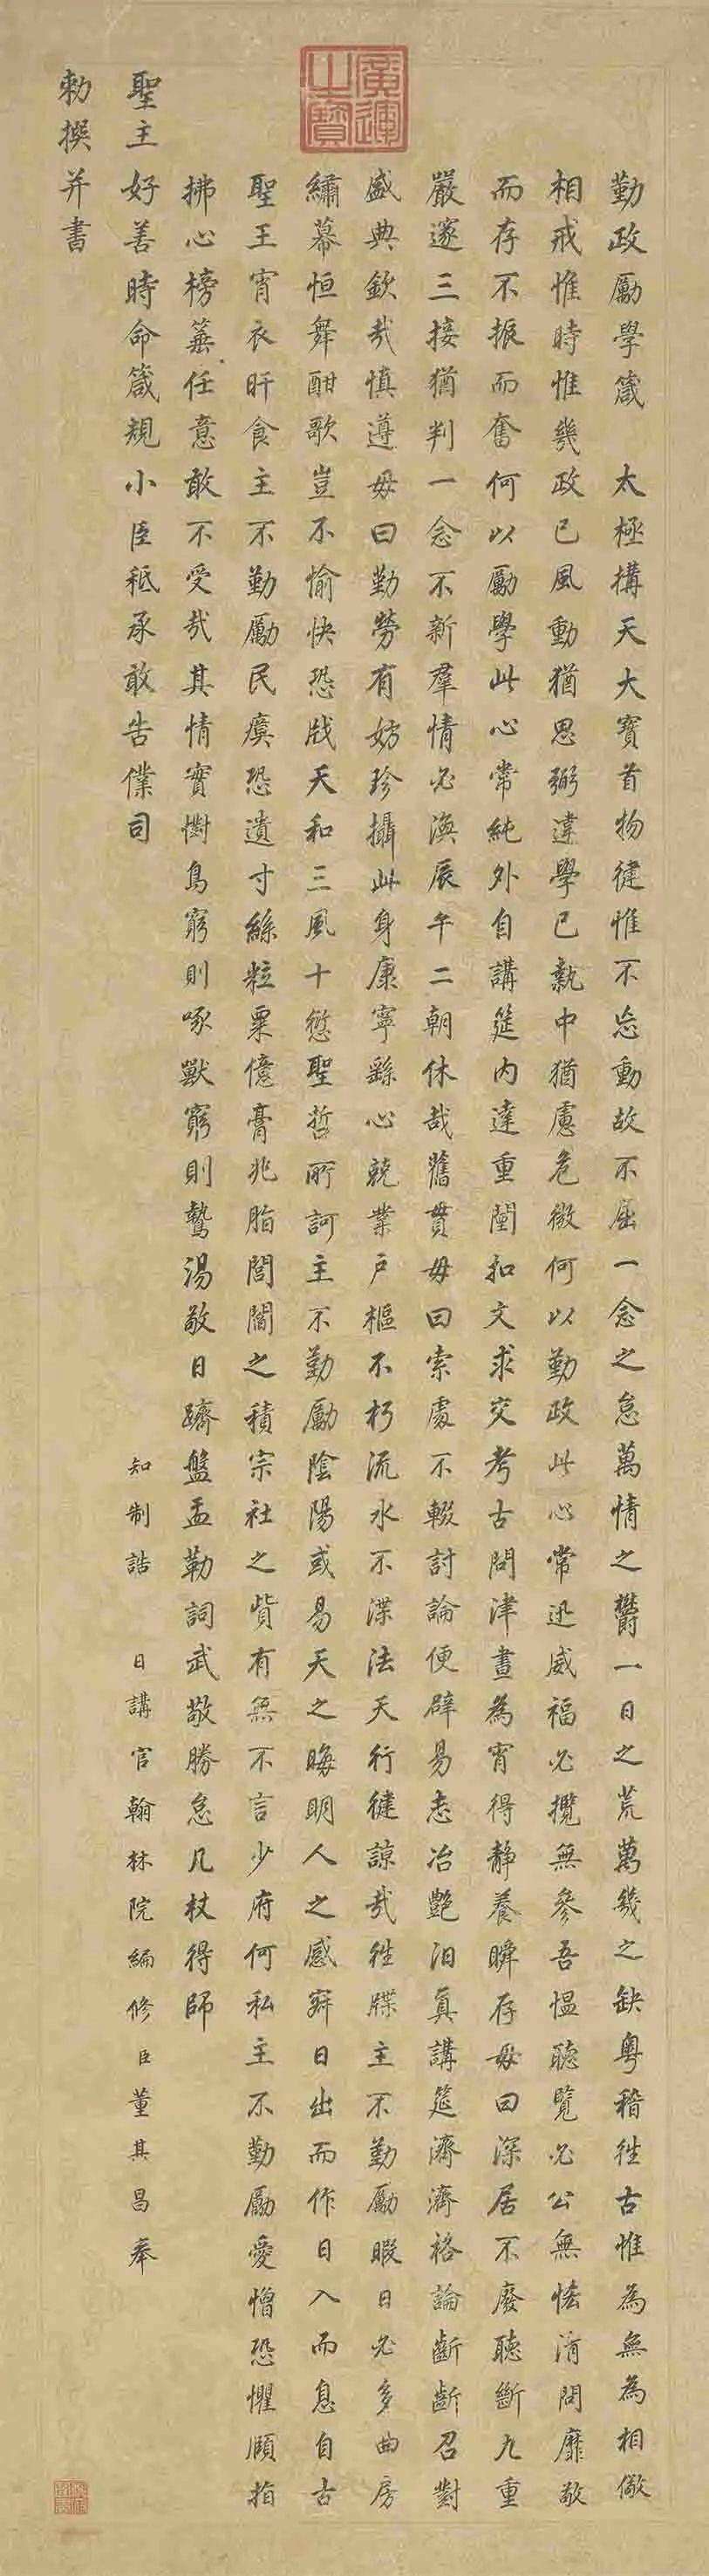 廣運之寶
勤政勵學箴　太極搆天大寶首物健惟不忘動故不屈一念之怠萬情之欝一日之荒萬幾之缺粵稽徃古惟為無為相儆
相戒惟時惟幾政已風動猶思弼違學已執中猶慮危微何以勤政此心常迅威福必攬無參吾慍聽覽必公無恡清問靡敬
而存不振而奮何以勵學此心常純外自講筵內達重闈扣文求交考古問津晝為宵得靜養瞬存毋曰深居不廢聽斷九重
嚴邃三接猶判一念不新羣情必渙辰午二朝休哉舊貫毋曰索處不輟討論便辟易志冶艷汩真講筵濟濟格論齗齗召對
盛典欽哉慎遵毋曰勤勞有妨珍攝此身康寧繇心兢業戶樞不朽流水不渫法天行健諒哉徃牒主不勤勵暇日必多曲房
繡幕恒舞酣歌豈不愉快恐戕天和三風十愆聖哲所訶主不勤勵陰陽或易天之晦明人之感寤日出而作日入而息自古
聖王宵衣旰食主不勤勵民瘼恐遺寸絲粒粟億膏兆脂閭閻之積宗社之貲有無不言少府何私主不勤勵愛憎恐懼頤指
拂心榜箠任意敢不受哉其情實懟鳥窮則啄獸窮則鷙湯敬日躋盤盂勒詞武敬勝怠几杖得師
聖主好善時命箴規小臣秪承敢告僕司　知制誥　日講官翰林院編修臣董其昌奉
勅撰并書